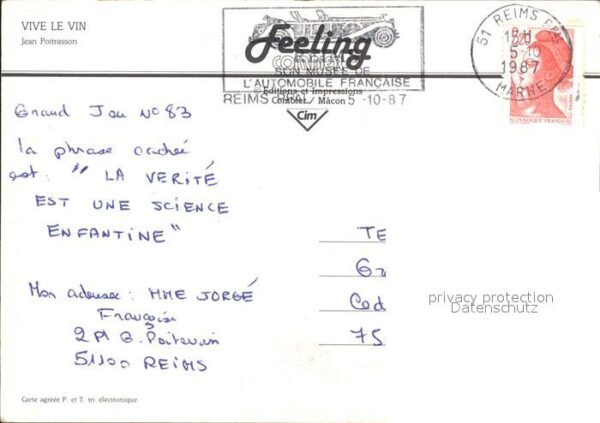 VIVE LE VIN
Jean Poitrasson
Feeling
combier
REIMS
SON MUSÉE DE
L'AUTOMOBILE FRANÇAISE
Editions et Impressions
Combier / Mâcon
REIMS 5 -10-87
Cim
51 REIMS
15H
5-10
1987
MARNE
2,20
REPUBLIQUE FRANÇAISE
Grand Jeu N° 83
la phrase cachée
est: " LA VERITÉ
EST UNE SCIENCE
ENFANTINE "
Mon adresse: MME JORGÉ
Françoise
2 Pl G. Poitevin
51100 REIMS
TE
Gr
Ced
75
privacy protection
Datenschutz
Carte agréée P. et T. tri électronique.